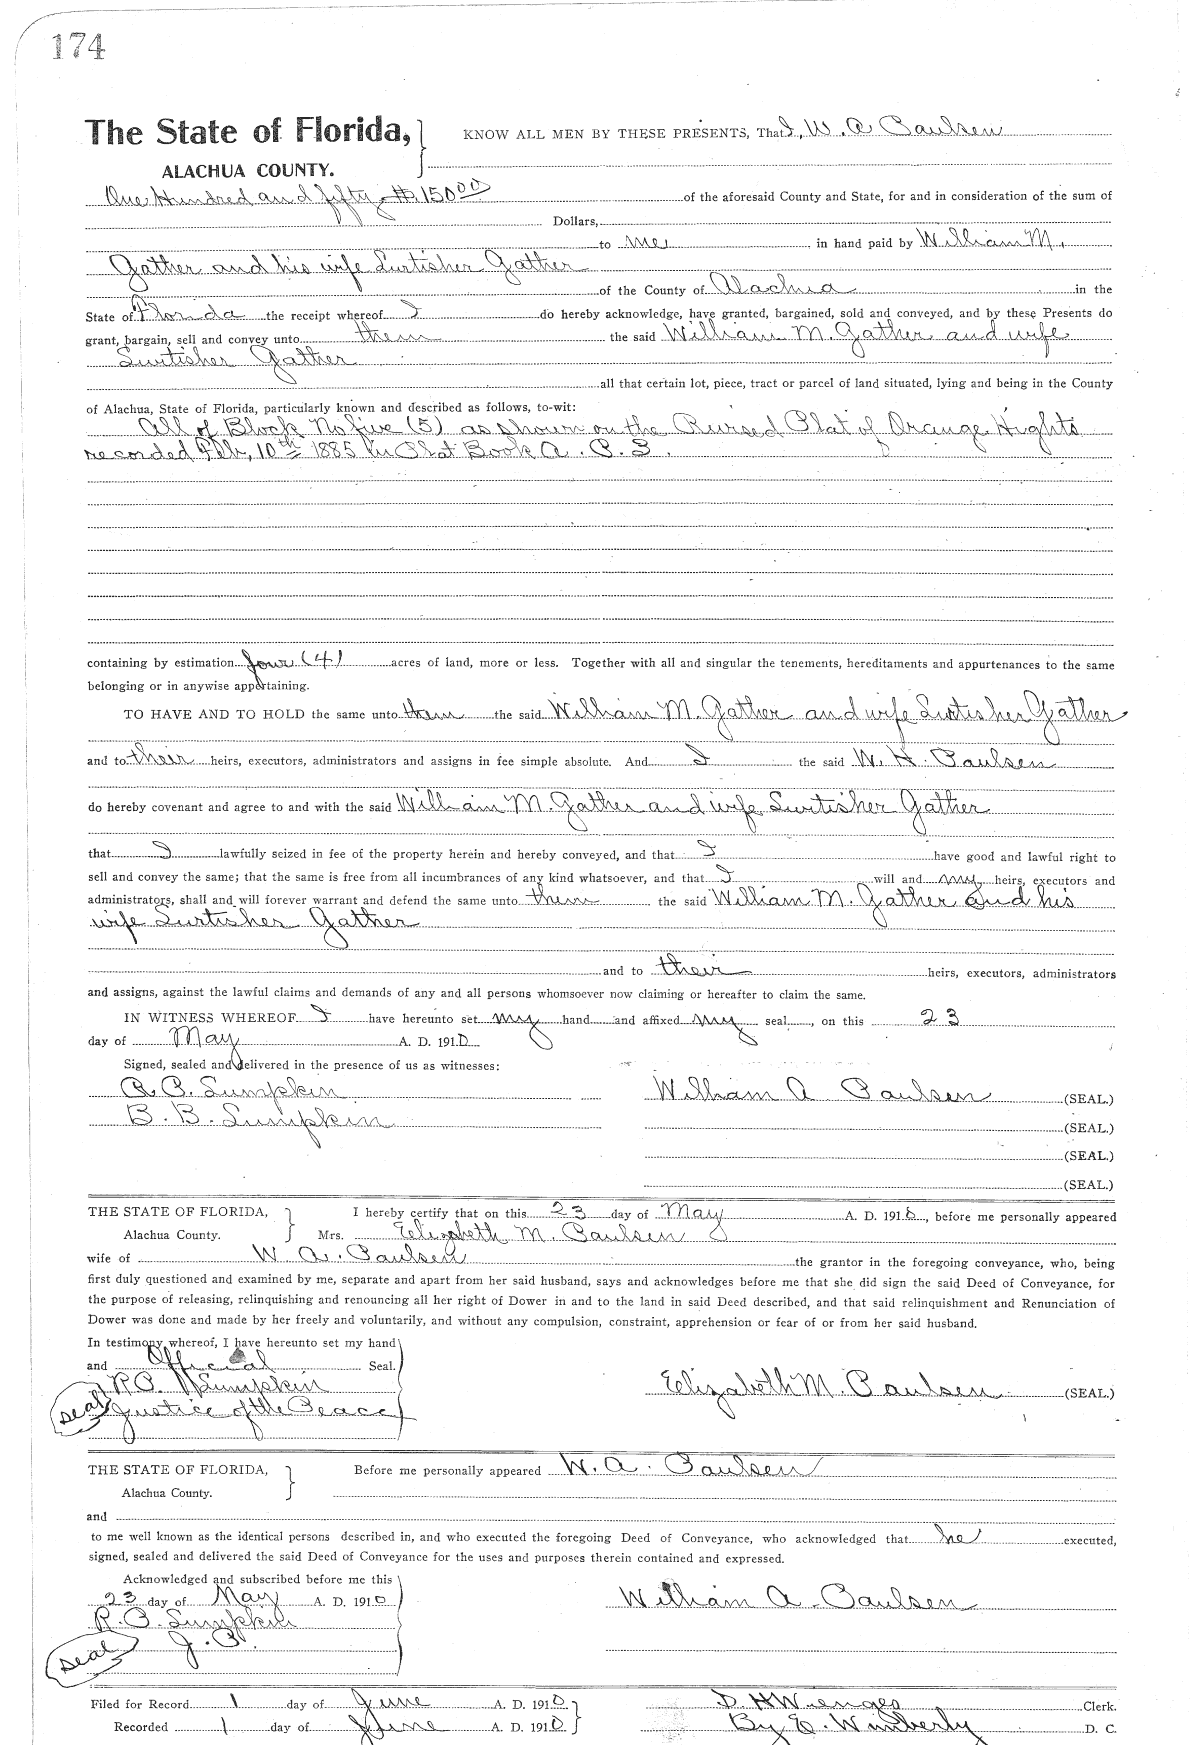 174
The State of Florida, } KNOW ALL MEN BY THESE PRESENTS, That I, W. A Paulsen
ALACHUA COUNTY.
One Hundred and fifty $150.00 of the aforesaid County and State, for and in consideration of the sum of
Dollars,
to me in hand paid by William M.
Gather and his wife Surtisher Gather
of the County of Alachua in the
State of Florida the receipt whereof I do hereby acknowledge, have granted, bargained, sold and conveyed, and by these Presents do
grant, bargain, sell and convey unto them the said William M. Gather and wife
Surtisher Gather
all that certain lot, piece, tract or parcel of land situated, lying and being in the County
of Alachua, State of Florida, particularly known and described as follows, to-wit:
All of Block No five (5) as shown on the Revised Plat of Orange Hights
recorded Feb, 10th 1885 in Plat Book A. P. 3.
containing by estimation four (4) acres of land, more or less. Together with all and singular the tenements, hereditaments and appurtenances to the same
belonging or in anywise appertaining.
TO HAVE AND TO HOLD the same unto them the said William M. Gather and wife Surtisher Gather
and to their heirs, executors, administrators and assigns in fee simple absolute. And I the said W. H. Paulsen
do hereby covenant and agree to and with the said William M. Gather and wife Surtisher Gather
that I lawfully seized in fee of the property herein and hereby conveyed, and that I have good and lawful right to
sell and convey the same; that the same is free from all incumbrances of any kind whatsoever, and that I will and my heirs, executors and
administrators, shall and will forever warrant and defend the same unto them the said William M. Gather and his
wife Surtisher Gather
and to their heirs, executors, administrators
and assigns, against the lawful claims and demands of any and all persons whomsoever now claiming or hereafter to claim the same.
IN WITNESS WHEREOF I have hereunto set my hand and affixed my seal, on this 23
day of May A. D. 1910
Signed, sealed and delivered in the presence of us as witnesses:
R. P. Lumpkin William A Paulsen (SEAL.)
B. B. Lumpkin (SEAL.)
(SEAL.)
(SEAL.)
THE STATE OF FLORIDA, } I hereby certify that on this 23 day of May A. D. 1910, before me personally appeared
Alachua County. Mrs. Elizabeth M. Paulsen
wife of W. A. Paulsen the grantor in the foregoing conveyance, who, being
first duly questioned and examined by me, separate and apart from her said husband, says and acknowledges before me that she did sign the said Deed of Conveyance, for
the purpose of releasing, relinquishing and renouncing all her right of Dower in and to the land in said Deed described, and that said relinquishment and Renunciation of
Dower was done and made by her freely and voluntarily, and without any compulsion, constraint, apprehension or fear of or from her said husband.
In testimony whereof, I have hereunto set my hand
and Official Seal.
R. P. Lumpkin Elizabeth M. Paulsen (SEAL.)
seal Justice of the Peace
THE STATE OF FLORIDA, } Before me personally appeared W. A. Paulsen
Alachua County.
and
to me well known as the identical persons described in, and who executed the foregoing Deed of Conveyance, who acknowledged that he executed,
signed, sealed and delivered the said Deed of Conveyance for the uses and purposes therein contained and expressed.
Acknowledged and subscribed before me this
23 day of May A. D. 1910 William A. Paulsen
R. P. Lumpkin
J. P.
seal
Filed for Record 1 day of June A. D. 1910 } D. H Wienges Clerk.
Recorded 1 day of June A. D. 1910 By E. Wimberly D. C.